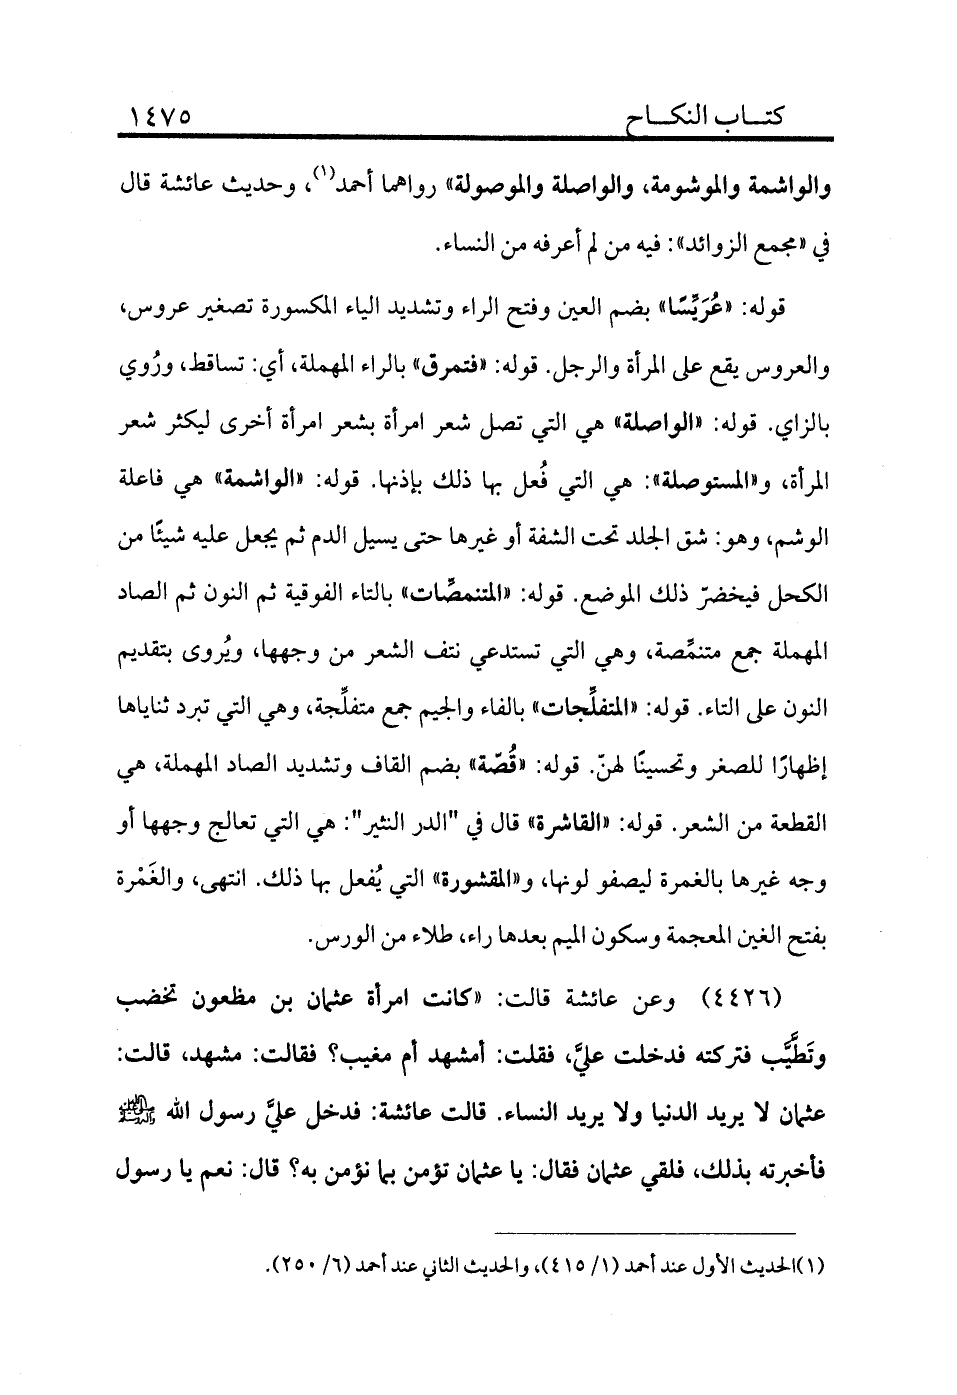 كتاب النكاح ١٤٧٥
والواشمة والموشومة، والواصلة والموصولة» رواهما أحمد(١)، وحديث عائشة قال
في «مجمع الزوائد»: فيه من لم أعرفه من النساء.
قوله: «عُرَيِّسًا» بضم العين وفتح الراء وتشديد الياء المكسورة تصغير عروس،
والعروس يقع على المرأة والرجل. قوله: «فتمرق» بالراء المهملة، أي: تساقط، ورُوي
بالزاي. قوله: «الواصلة» هي التي تصل شعر امرأة بشعر امرأة أخرى ليكثر شعر
المرأة، و«المستوصلة»: هي التي فُعل بها ذلك بإذنها. قوله: «الواشمة» هي فاعلة
الوشم، وهو: شق الجلد تحت الشفة أو غيرها حتى يسيل الدم ثم يجعل عليه شيئًا من
الكحل فيخضرّ ذلك الموضع. قوله: «المتنمصِّات» بالتاء الفوقية ثم النون ثم الصاد
المهملة جمع متنمِّصة، وهي التي تستدعي نتف الشعر من وجهها، ويُروى بتقديم
النون على التاء. قوله: «المتفلِّجات» بالفاء والجيم جمع متفلِّجة، وهي التي تبرد ثناياها
إظهارًا للصغر وتحسينًا لهنّ. قوله: «قُصّة» بضم القاف وتشديد الصاد المهملة، هي
القطعة من الشعر. قوله: «القاشرة» قال في "الدر النثير": هي التي تعالج وجهها أو
وجه غيرها بالغمرة ليصفو لونها، و«المقشورة» التي يُفعل بها ذلك. انتهى، والغَمْرة
بفتح الغين المعجمة وسكون الميم بعدها راء، طلاء من الورس.
(٤٤٢٦) وعن عائشة قالت: «كانت امرأة عثمان بن مظعون تخضب
وتَطَّيَّب فتركته فدخلت عليَّ، فقلت: أمشهد أم مغيب؟ فقالت: مشهد، قالت:
عثمان لا يريد الدنيا ولا يريد النساء. قالت عائشة: فدخل عليَّ رسول الله ﷺ
فأخبرته بذلك، فلقي عثمان فقال: يا عثمان تؤمن بما نؤمن به؟ قال: نعم يا رسول
(١)الحديث الأول عند أحمد (١/ ٤١٥)، والحديث الثاني عند أحمد (٦/ ٢٥٠).